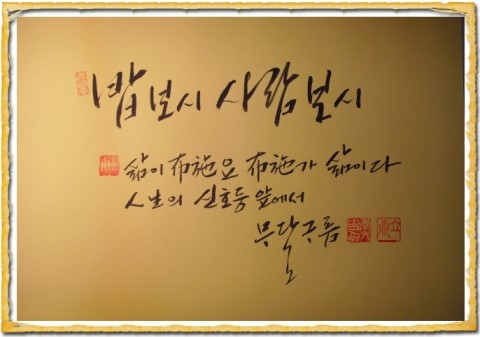 밥보시 사람보시
삶이 布施요 布施가 삶이다
人生의 신호등 앞에서